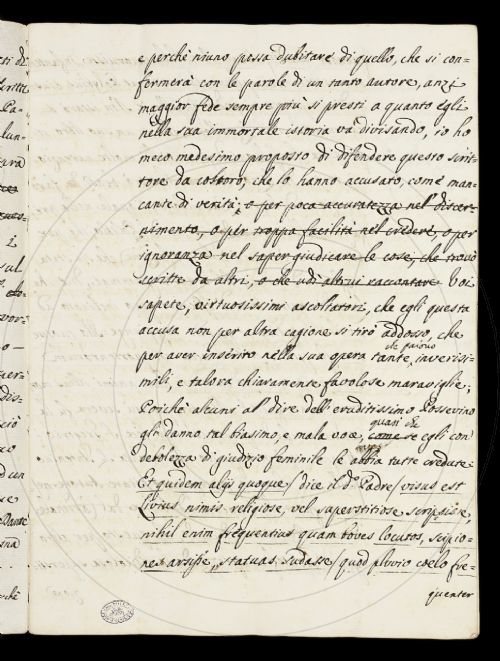 e perchè niuno possa dubitare di quello, che si con-
fermerà con le parole di un tanto autore, anzi
maggior fede sempre più si presti a quanto egli
nella sua immortale istoria va divisando, io ho
meco medesimo proposto di difendere questo scrit-
tore da coloro, che lo hanno accusato, come man-
cante di verità, o per poca accuratezza nel discer-
nimento, o per troppa facilità nel credere, o per
ignoranza nel saper giudicare le cose, che trovò
scritte da altri, o che udì altrui raccontare Voi
sapete, virtuosissimi ascoltatori, che egli questa
accusa non per altra cagione si tirò addosso, che
che paiono
per aver inserito nella sua opera tante inverisi-
mili, e talora chiaramente favolose maraviglie;
Poichè alcuni al dire dell'eruditissimo Possevino
quasi che
gli danno tal biasimo, e mala voce, come se egli con
debolezza di giudizio feminile le abbia tutte credute.
Et quidem aliis quoque / dice il d.º Padre / visus est
Livius nimis religiose, vel superstitiose scripsisse,
nihil enim frequentius quam boves locutos, scipio-
nes arsisse, statuas sudasse / quod pluvio coelo fre-
quenter